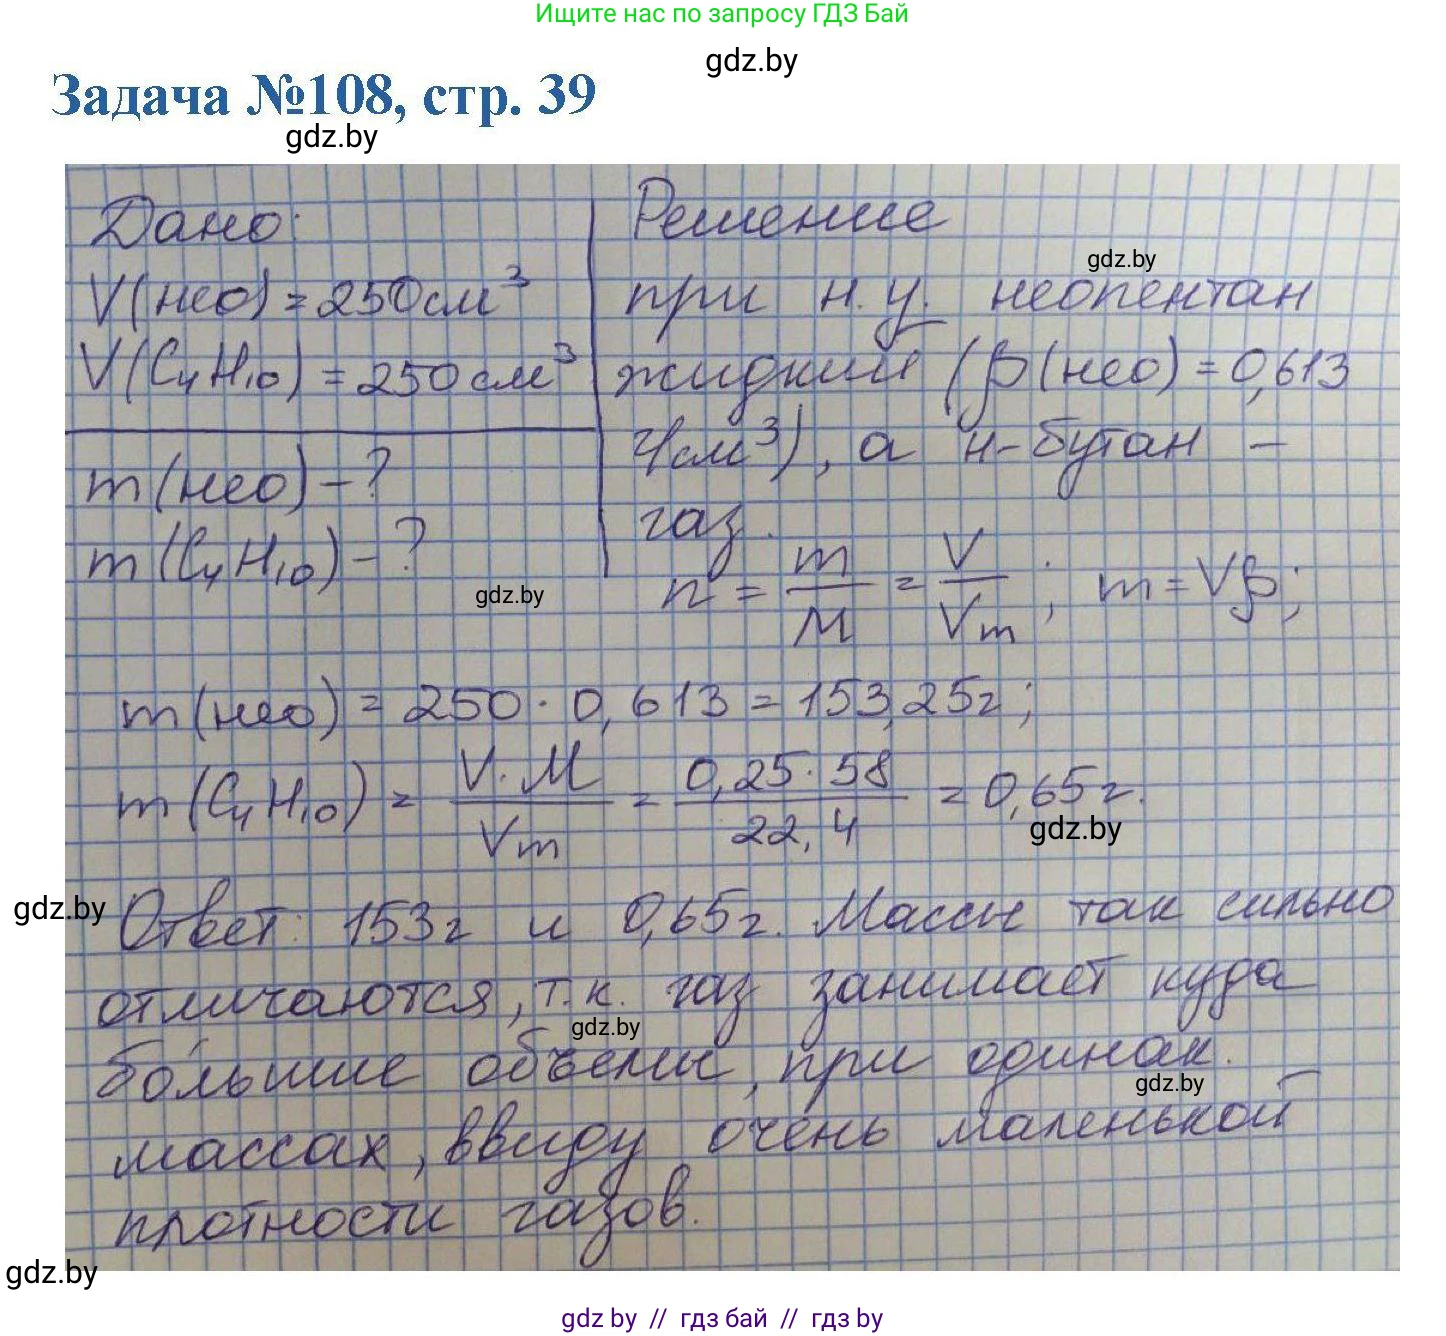 Ищите нас по запросу ГДЗ Бай
gdz.by
Задача №108, стр. 39
gdz.by
Дано:
V(нео) = 250см³
V(C₄H₁₀) = 250см³
m(нео) - ?
m(C₄H₁₀) - ?
Решение
gdz.by
при н.у. неопентан
жидкий (ρ(нео) = 0,613
г/см³), а н-бутан -
газ.
n = m/M = V/Vm; m = Vρ;
gdz.by
m(нео) = 250 · 0,613 = 153,25г;
m(C₄H₁₀) = V·M/Vm = 0,25·58/22,4 = 0,65г.
gdz.by
gdz.by
Ответ: 153г и 0,65г. Массы так сильно
отличаются, т.к. газ занимает куда
gdz.by
бо́льшие объемы, при одинак.
gdz.by
массах, ввиду очень маленькой
плотности газов.
gdz.by
gdz by // гдз бай // гдз by